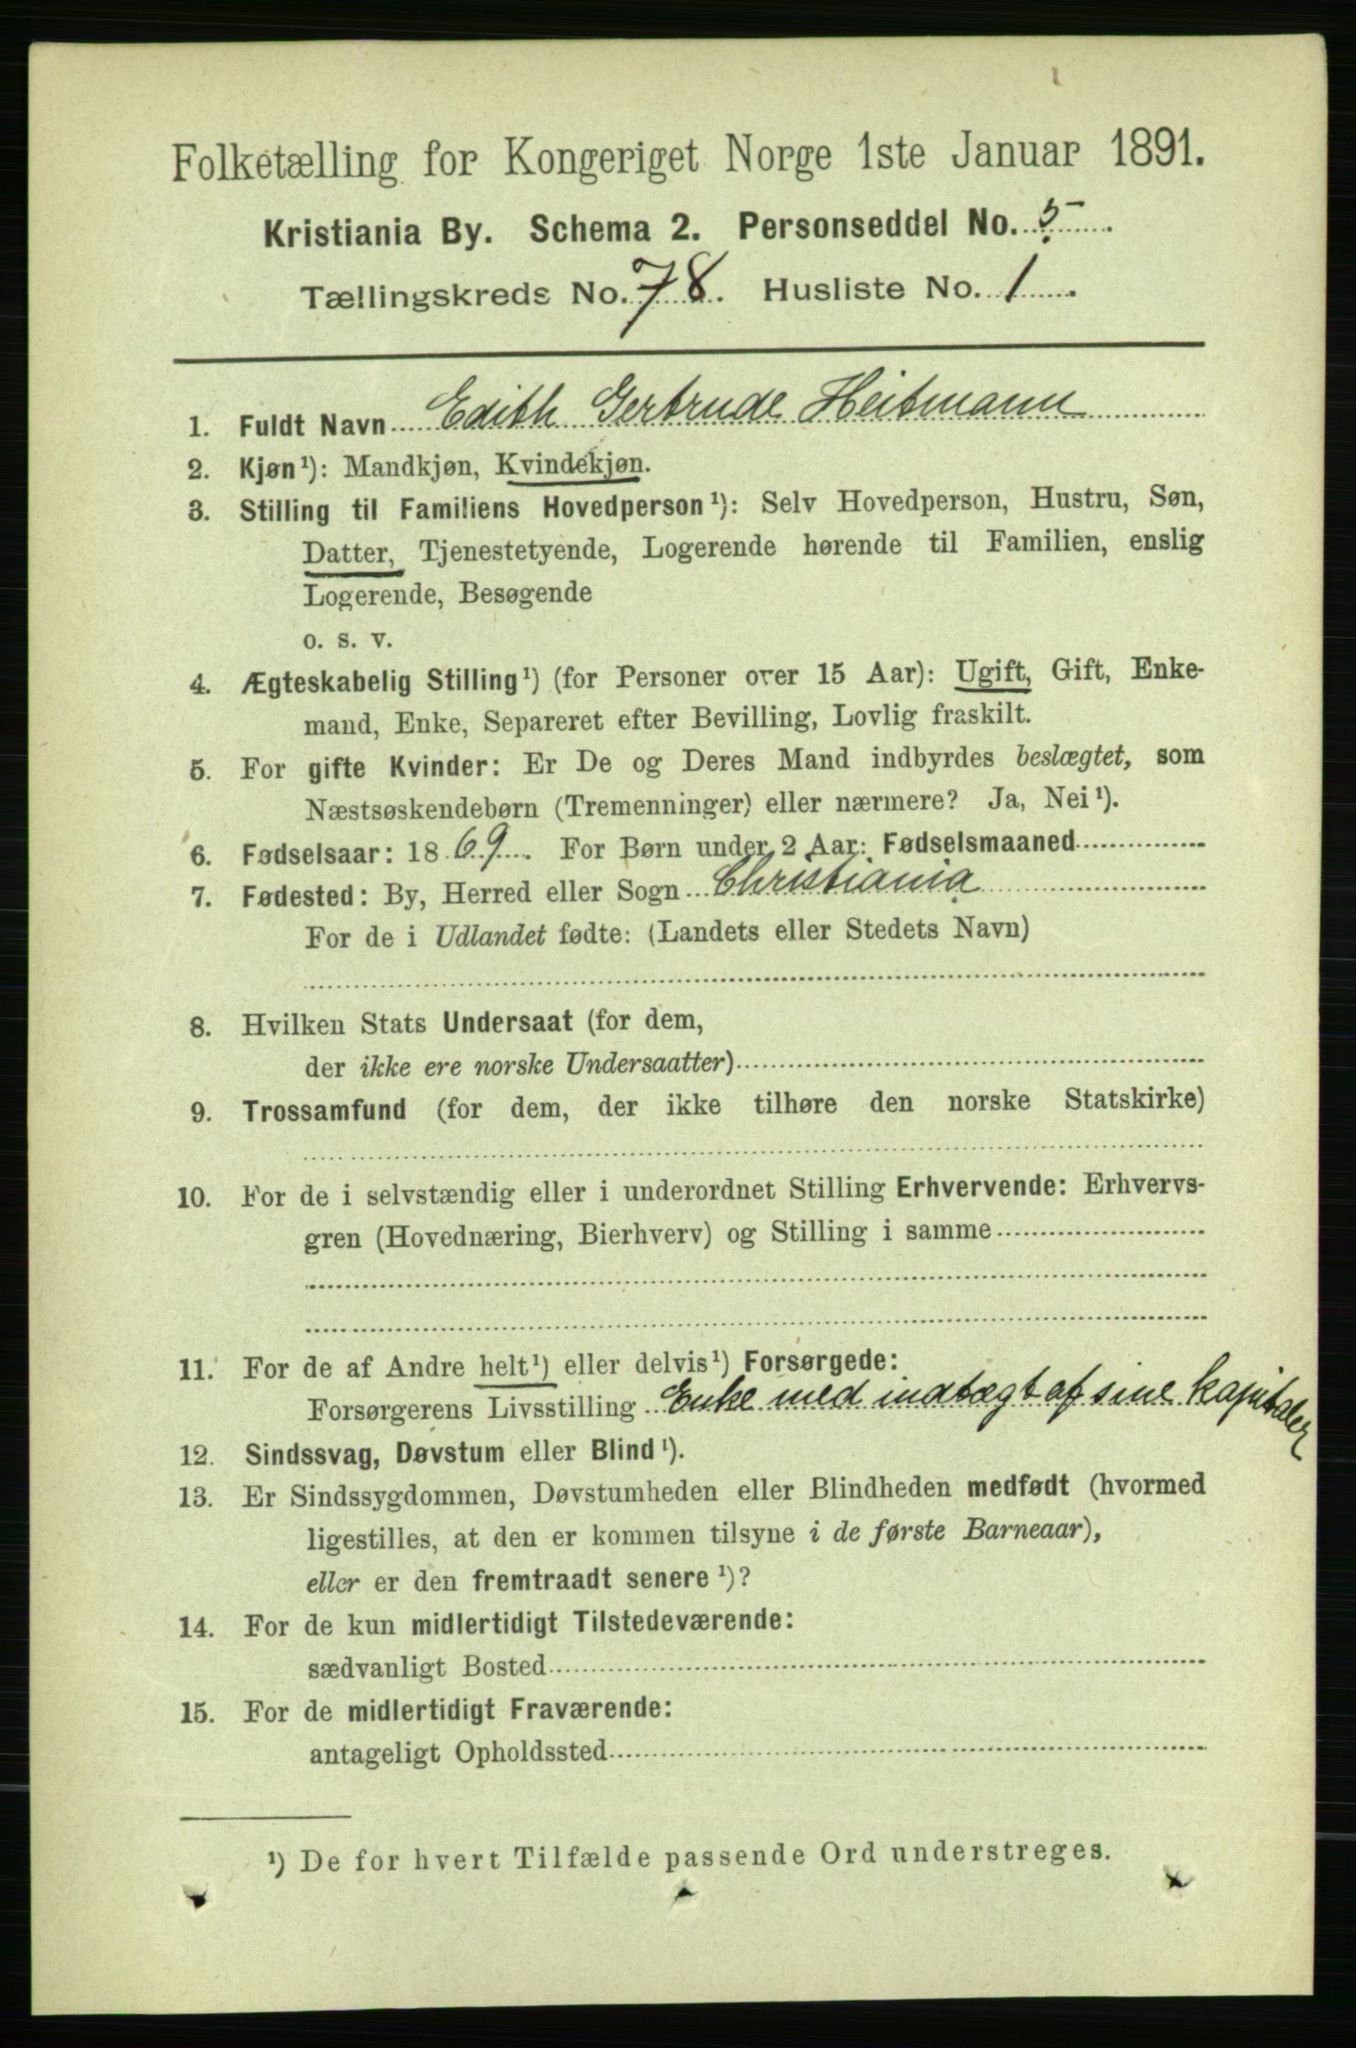 Folketælling for Kongeriget Norge 1ste Januar 1891.
Kristiania By. Schema 2. Personseddel No. 5.
Tællingskreds No. 78. Husliste No. 1.
1. Fuldt Navn Edith Gertrude Heitmann
2. Kjøn¹): Mandkjøn, Kvindekjøn.
3. Stilling til Familiens Hovedperson¹): Selv Hovedperson, Hustru, Søn,
Datter, Tjenestetyende, Logerende hørende til Familien, enslig
Logerende, Besøgende
o. s. v.
4. Ægteskabelig Stilling¹) (for Personer over 15 Aar): Ugift, Gift, Enke-
mand, Enke, Separeret efter Bevilling, Lovlig fraskilt.
5. For gifte Kvinder: Er De og Deres Mand indbyrdes beslægtet, som
Næstsøskendebørn (Tremenninger) eller nærmere? Ja, Nei¹).
6. Fødselsaar: 1869. For Børn under 2 Aar: Fødselsmaaned
7. Fødested: By, Herred eller Sogn Christiania
For de i Udlandet fødte: (Landets eller Stedets Navn)
8. Hvilken Stats Undersaat (for dem,
der ikke ere norske Undersaatter)
9. Trossamfund (for dem, der ikke tilhøre den norske Statskirke)
10. For de i selvstændig eller i underordnet Stilling Erhvervende: Erhvervs-
gren (Hovednæring, Bierhverv) og Stilling i samme
11. For de af Andre helt¹) eller delvis¹) Forsørgede:
Forsørgerens Livsstilling Enke med indtægt af sine kapitaler
12. Sindssvag, Døvstum eller Blind¹).
13. Er Sindssygdommen, Døvstumheden eller Blindheden medfødt (hvormed
ligestilles, at den er kommen tilsyne i de første Barneaar),
eller er den fremtraadt senere¹)?
14. For de kun midlertidigt Tilstedeværende:
sædvanligt Bosted
15. For de midlertidigt Fraværende:
antageligt Opholdssted
¹) De for hvert Tilfælde passende Ord understreges.